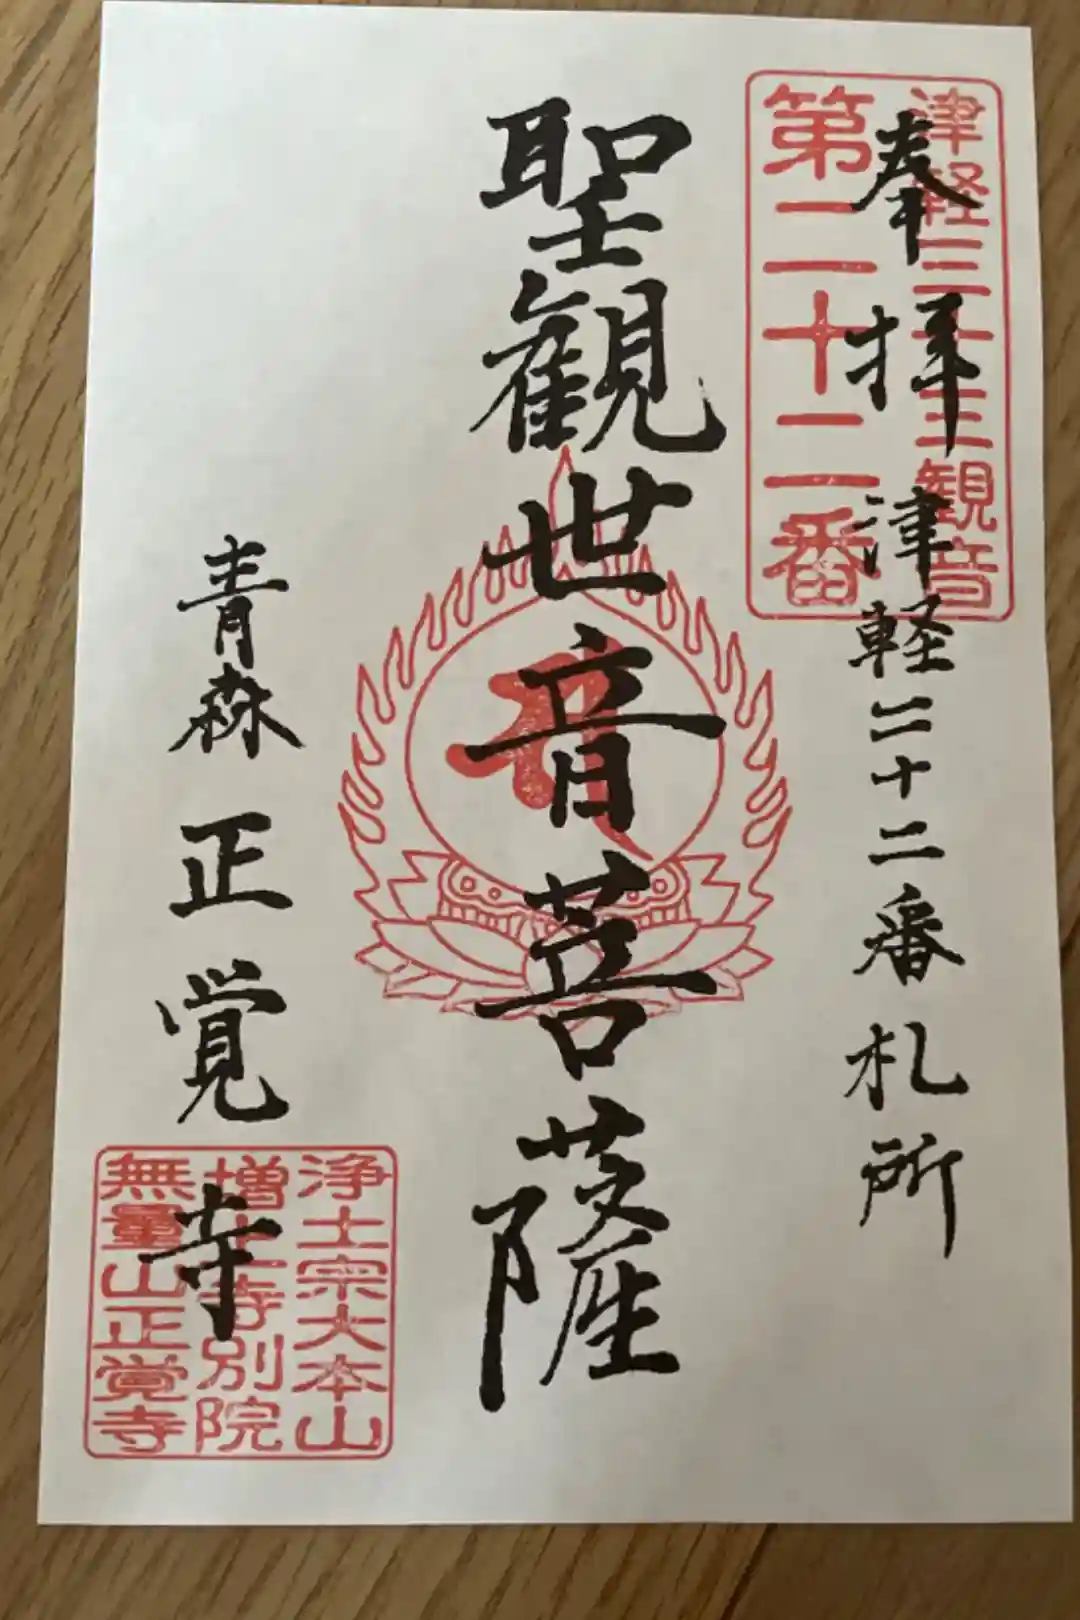 津軽三十三観音
第二十二番
奉拝 津軽二十二番札所
聖観世音菩薩
青森 正覚寺
浄土宗大本山
増上寺別院
無量山正覚寺